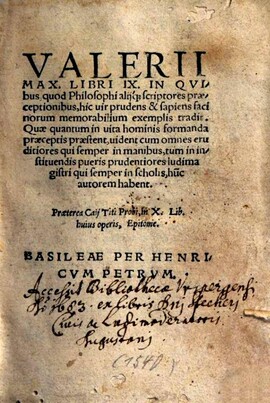 VALERII
MAX. LIBRI IX. IN QVI
bus, quod Philosophi alijq́; scriptores præ
ceptionibus, hic uir prudens & sapiens faci
norum memorabilium exemplis tradit.
Quæ quantum in uita hominis formanda
præceptis præstent, uident cum omnes eru
ditiores qui semper in manibus, tum in in
stituendis pueris prudentiores ludima
gistri qui semper in scholis, hūc
autorem habent.
Præterea Caij Titi Probi, in X. Lib.
huius operis, Epitome.
BASILEAE PER HENRI
CVM PETRVM.
Accessit Bibliothecæ
1683 ex libris Dni
Augustani
(1540)